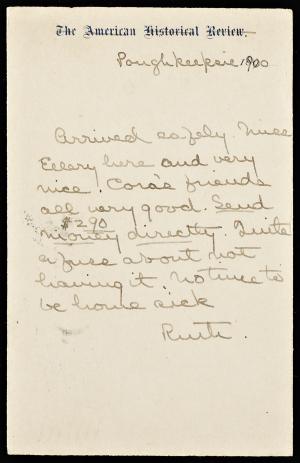 The American Historical Review.
Poughkeepsie 1900
Arrived safely. Miss
Ellery here and very
nice. Cora's friends
all very good. Send
$290
money directly Quite
a fuss about not
having it. No time to
be home sick
Ruth.